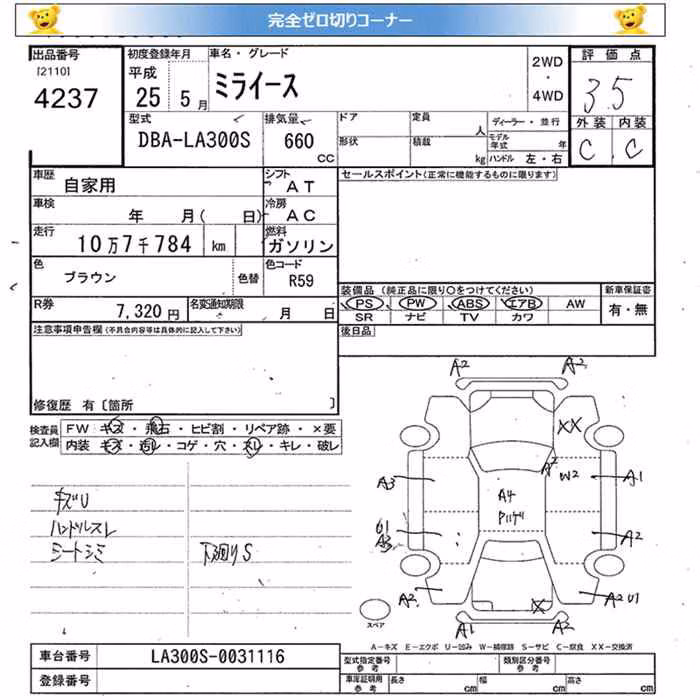 完全ゼロ切りコーナー
出品番号
[2110]
4237
初度登録年月
平成
25 5月
車名・グレード
ミライース
2WD
・
4WD
評価点
3.5
外装 内装
C C
型式
DBA-LA300S
排気量
660
CC
ドア
形状
定員
人
積載
kg
ディーラー・並行
モデル年式 年
ハンドル 左・右
車歴
自家用
シフト
AT
車検
年 月( 日)
冷房
AC
走行
10万7千784 km
燃料
ガソリン
色
ブラウン
色替
色コード
R59
R券
7,320円
名変通知期限
月 日
セールスポイント(正常に機能するものに限ります)
装備品 (純正品に限り○をつけてください)
PS PW ABS エアB AW
SR ナビ TV カワ
新車保証書
有・無
後日品
注意事項申告欄(不具合内容等は具体的に記入して下さい)
修復歴 有〔箇所 〕
検査員記入欄
FW キズ・飛石・ヒビ割・リペア跡・×要
内装 キズ・汚レ・コゲ・穴・スレ・キレ・破レ
キズU
ハンドルスレ
シートシミ
下廻りS
A2 A2
XX
A2
W2
A3
A1
A4
Pハゲ
U1
A3
A2
A2
A2 U1
X
A1
A2
スペア
A-キズ E-エクボ U-凹み W-補修跡 S-サビ C-腐食 XX-交換済
車台番号
LA300S-0031116
登録番号
型式指定番号
参考
類別区分番号
参考
車庫証明用
参考
長さ cm 幅 cm 高さ cm